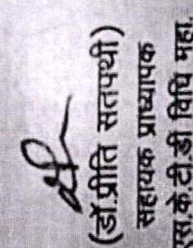 (डॉ.प्रीति सतपथी)
सहायक प्राध्यापक
के.टी.डी विधि महा